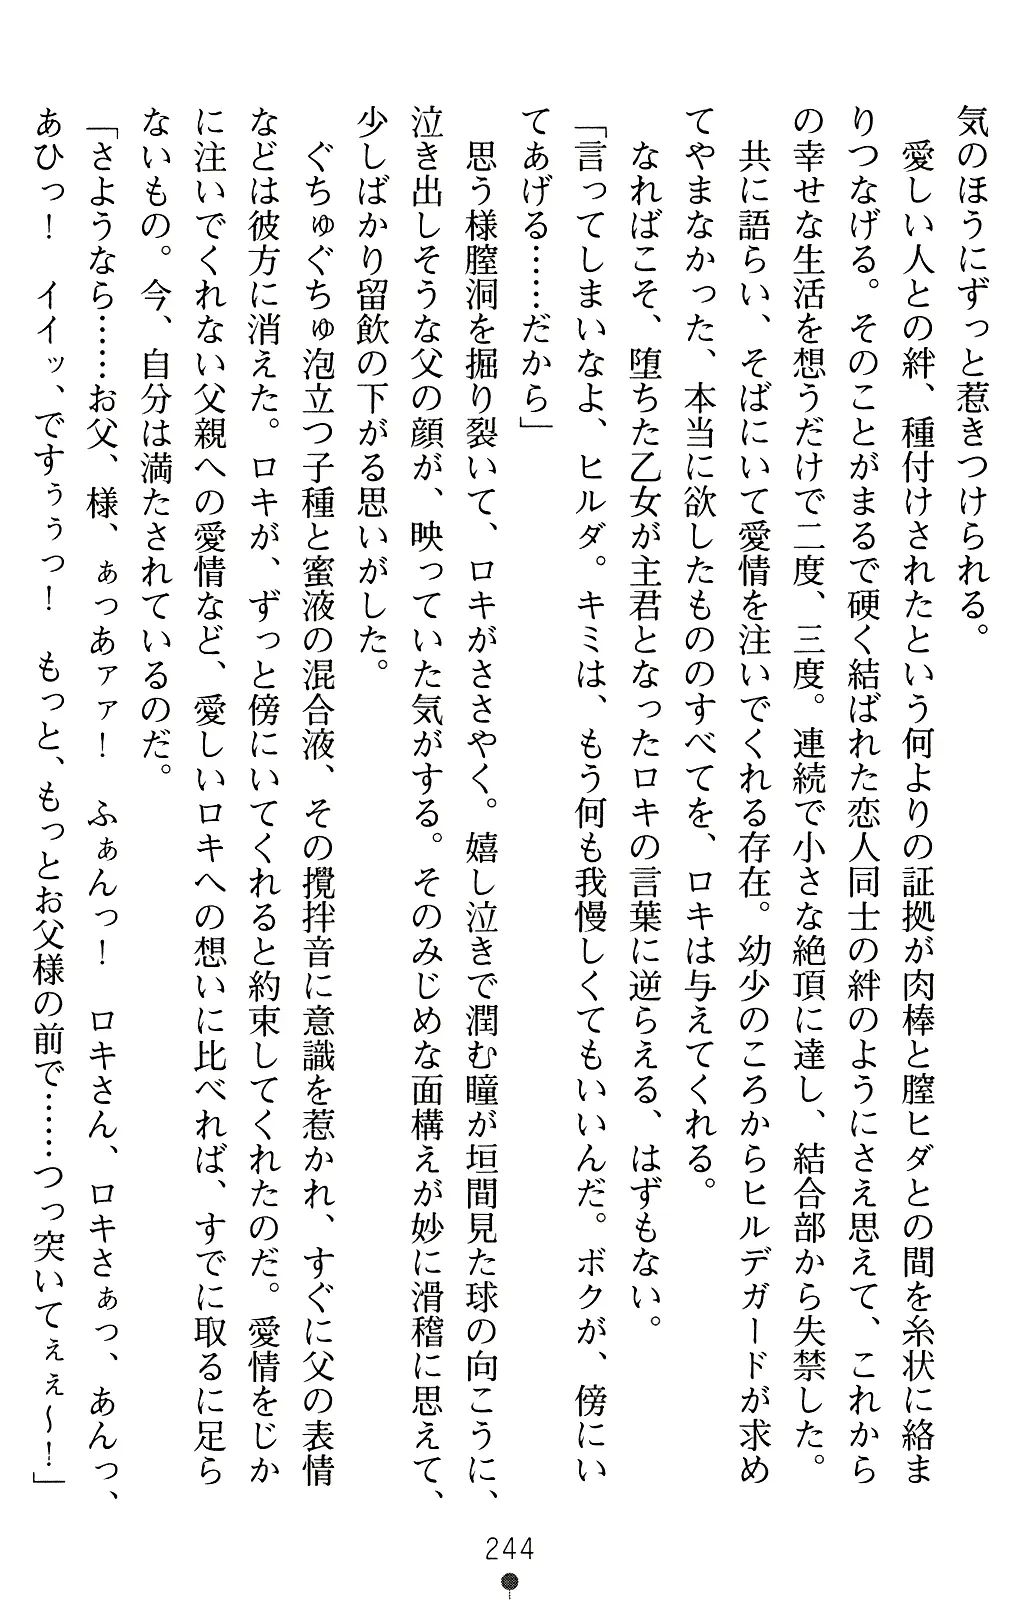 気のほうにずっと惹きつけられる。
　愛しい人との絆、種付けされたという何よりの証拠が肉棒と膣ヒダとの間を糸状に絡ま
りつなげる。そのことがまるで硬く結ばれた恋人同士の絆のようにさえ思えて、これから
の幸せな生活を想うだけで二度、三度。連続で小さな絶頂に達し、結合部から失禁した。
　共に語らい、そばにいて愛情を注いでくれる存在。幼少のころからヒルデガードが求め
てやまなかった、本当に欲したもののすべてを、ロキは与えてくれる。
　なればこそ、堕ちた乙女が主君となったロキの言葉に逆らえる、はずもない。
「言ってしまいなよ、ヒルダ。キミは、もう何も我慢しなくてもいいんだ。ボクが、傍にい
てあげる……だから」
　思う様膣洞を掘り裂いて、ロキがささやく。嬉し泣きで潤む瞳が垣間見た球の向こうに、
泣き出しそうな父の顔が、映っていた気がする。そのみじめな面構えが妙に滑稽に思えて、
少しばかり留飲の下がる思いがした。
　ぐちゅぐちゅ泡立つ子種と蜜液の混合液、その攪拌音に意識を惹かれ、すぐに父の表情
などは彼方に消えた。ロキが、ずっと傍にいてくれると約束してくれたのだ。愛情をじか
に注いでくれない父親への愛情など、愛しいロキへの想いに比べれば、すでに取るに足ら
ないもの。今、自分は満たされているのだ。
「さようなら……お父、様、ぁっあァァ！　ふぁんっ！　ロキさん、ロキさぁっ、あんっ、
あひっ！　イイッ、ですぅぅっ！　もっと、もっとお父様の前で……つっ突いてぇぇ～！」
244